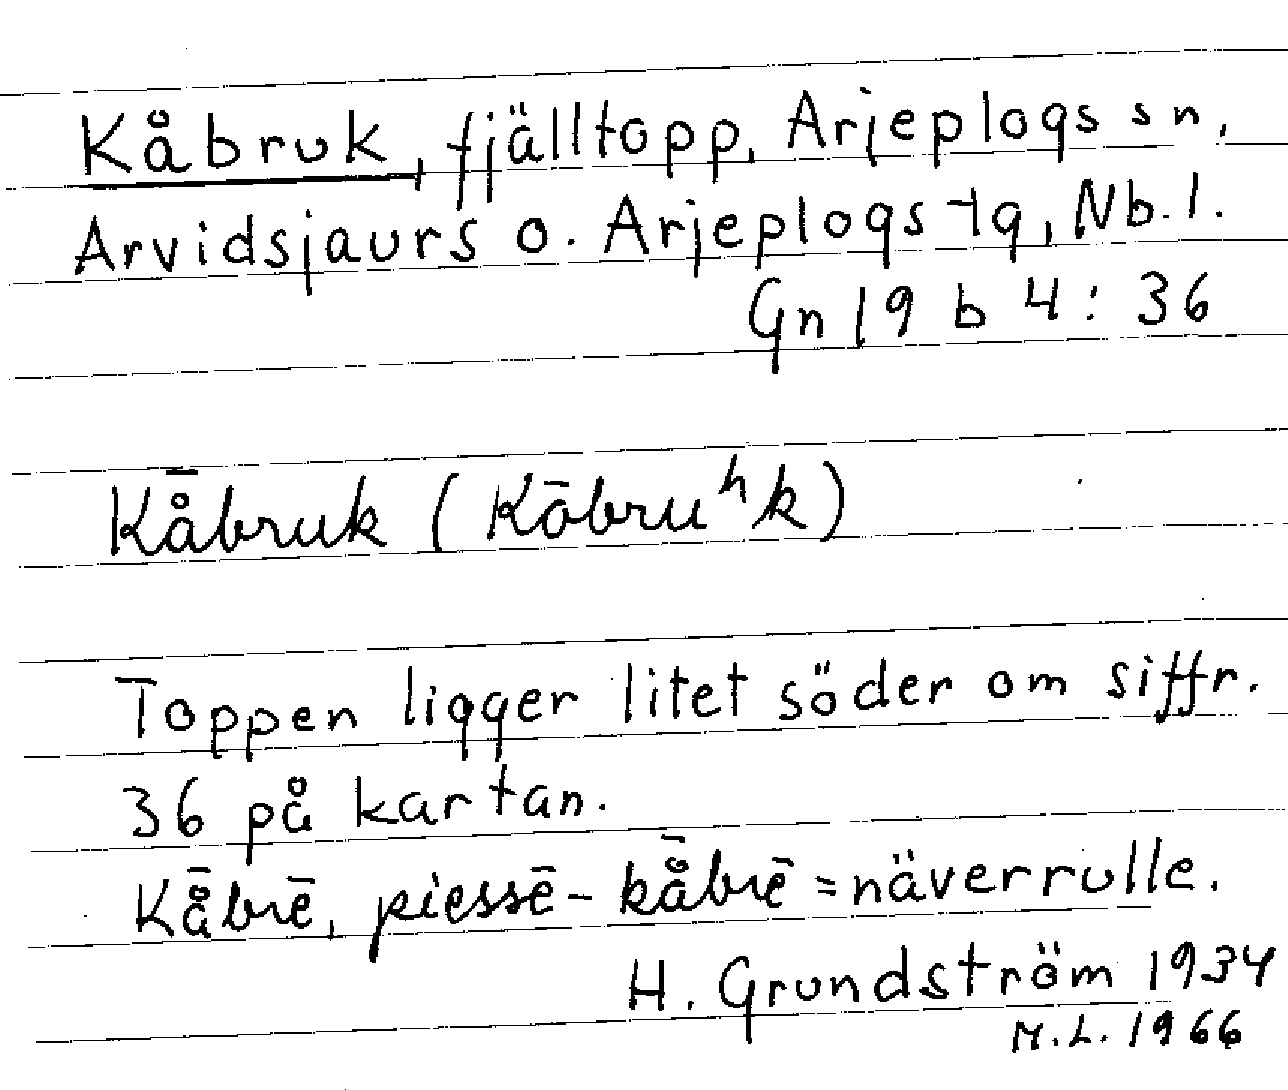 Kåbruk, fjälltopp, Arjeplogs sn,
Arvidsjaurs o. Arjeplogs tg, Nb. l.
Gn 19 b 4: 36
Kå̄bruk (Kōbruʰk)
Toppen ligger litet söder om siffr.
36 på kartan.
Kå̄brē, piessē-kå̄brē = näverrulle.
H. Grundström 1934
M.L. 1966